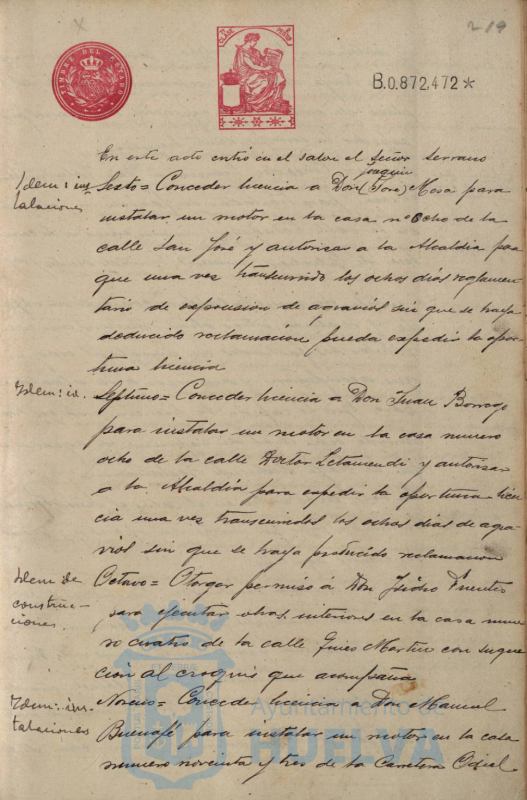 219
TIMBRE DEL ESTADO
B.0.872,472*
En este acto entró en el salon el señor Serrano
Idem: ins
talaciones
Sexto= Conceder licencia a Don (José) Joaquin Mesa para
instalar un motor en la casa nº ocho de la
calle San José y autorizar a la Alcaldia para
que una vez transcurrido los ochos días reglamen-
tario de exposicion de agravios sin que se haya
deducido reclamación pueda expedir la opor-
tuna licencia
Idem: id.
Septimo= Conceder licencia a Don Juan Borrego
para instalar un motor en la casa numero
ocho de la calle Doctor Letamendi y autorizar
a la Alcaldía para expedir la oportuna licen-
cia una vez transcurridos los ochos dias de agra-
vios sin que se haya producido reclamacion
Idem de
construc-
ciones
Octavo= Otorgar permiso á Don Isidro Puentes
para ejecutar obras interiores en la casa nume-
ro cuatro de la calle Gines Martin con suge-
cion al croquis que acompaña
Idem: ins-
talaciones
Noveno= Conceder licencia a Don Manuel
Buenafé para instalar un motor en la casa
numero noventa y tres de la Carretera Odiel
Ayuntamiento de
HUELVA